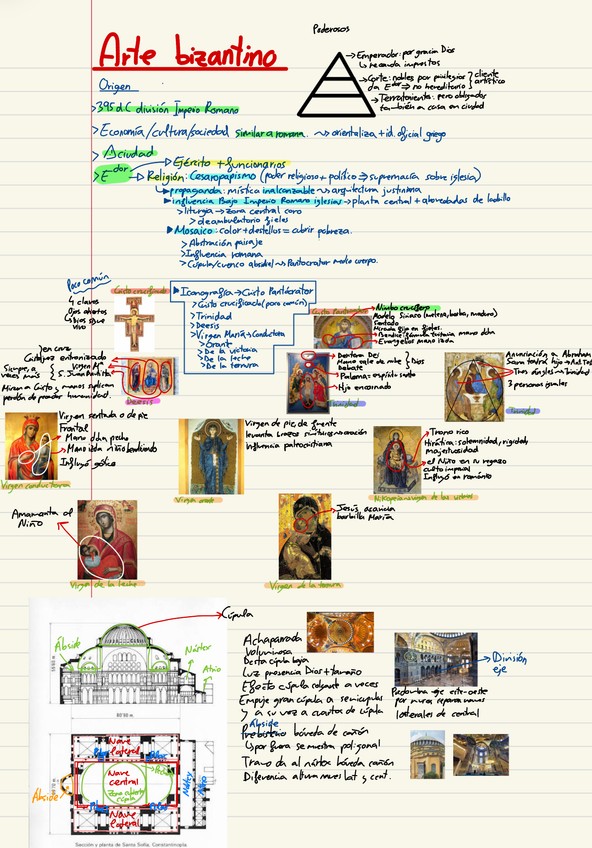 Poderosos
Arte bizantino
→ Emperador: por gracia Dios
↳ recauda impuestos
→ Corte: nobles por privilegios
da Edor ⇒ no hereditario
cliente
artístico
→ Terrateniente: pero obligados
también a casa en ciudad
Origen
> 395 d.C división Imperio Romano
> Economía/cultura/sociedad similar a romana. ~> orientaliza + id. oficial griego
> ciudad
→ Ejército + funcionarios
> Edor → Religión: Cesaropapismo (poder religioso + político ⇒ supremacía sobre iglesia)
propaganda: mística inalcanzable ~> arquitectura justiniana
influencia Bajo Imperio Romano iglesias → planta central + abovedadas de ladrillo
> liturgia → zona central coro
> deambulatorio fieles
Mosaico: color + destellos = cubrir pobreza.
> Abstracción paisaje
> Influencia romana
> Cúpula/cuenco absidial ~> Pantocrator medio cuerpo.
Poco común
4 clavos
Ojos abiertos
vivo
Cristo crucificado
Iconografía → Cristo Pantócrator
> Cristo crucificado (poco común)
> Trinidad
> Deesis
> Virgen María → Conductora
> Orant
> De la victoria
> De la leche
> De la ternura
Cristo Pantócrator
Nimbo crucífero
Sentado
Evangelios mano izda
en cruz
Cristo juez entronizado
Virgen Mª
S. Juan Bautista
Miran a Cristo, y manos suplican
perdón de pecados humanidad.
Deesis
Paloma = espíritu santo
Hijo encarnado
Dios
Trinidad
Anunciación a Abraham
3 personas iguales
Trinidad
Virgen sentada o de pie
Frontal
Mano dcha pecho
Mano izda niño bendiciendo
Influyó gótico
Virgen conductora
Virgen de pie, de frente
Influencia paleocristiana
Virgen orante
Trono rico
Hierática: solemnidad, rigidez,
majestuosidad
el Niño en su regazo
culto imperial
Influyó en románico
Nikopoia = virgen de las victorias
Amamanta al
Niño
Virgen de la leche
Jesús acaricia
barbilla María
Virgen de la ternura
Cúpula
Ábside
Nártex
Atrio
Achaparrada
Voluminosa
Desta cúpula baja
Luz presencia Dios + tamaño
Efecto cúpula colgante a veces
Empuje gran cúpula a semicúpulas
y a su vez a cuartos de cúpula
Ábside
Presbiterio bóveda de cañón
↳ por fuera se muestra poligonal
Tramo da al nártex bóveda cañón
Diferencia altura naves lat y cent.
División
eje
Predomina eje este-oeste
por muros separan naves
laterales de central
Nave
lateral
Nave
central
Zona abierta
cúpula
Nave
lateral
Ábside
Nártex
Atrio
Sección y planta de Santa Sofía, Constantinopla.